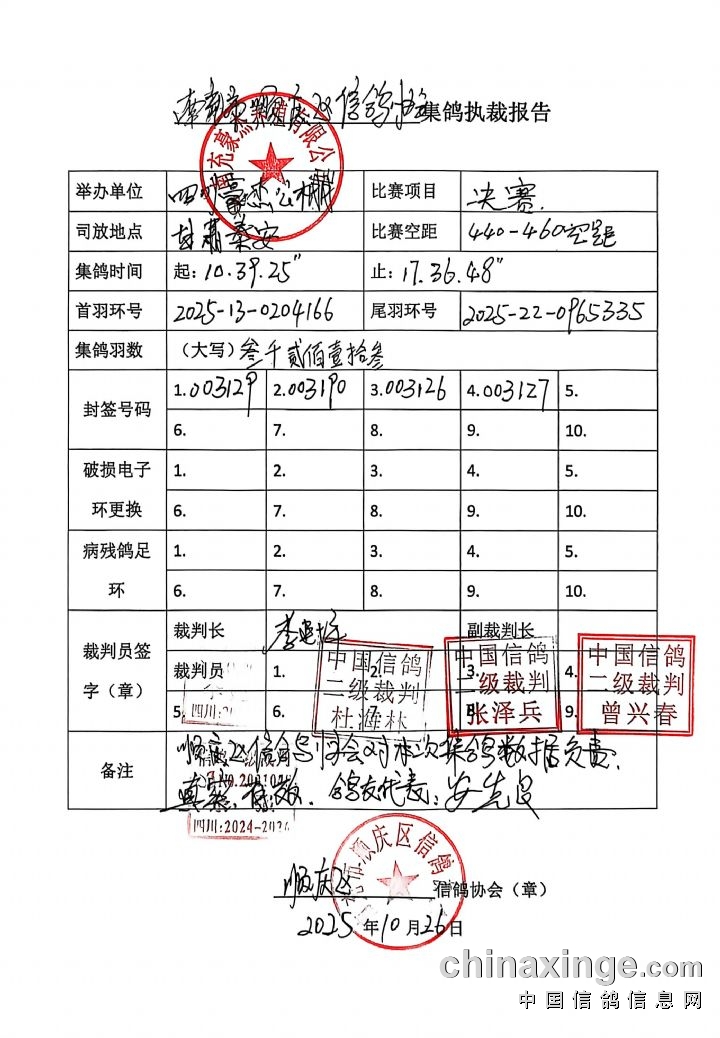 南充市顺庆区信鸽协会集鸽执裁报告
举办单位 四川豪杰公棚 比赛项目 决赛.
司放地点 甘肃秦安 比赛空距 440-460空距
集鸽时间 起: 10.39.25" 止: 17.36.48"
首羽环号 2025-13-0204166 尾羽环号 2025-22-0965335
集鸽羽数 （大写）叁千贰佰壹拾叁
封签号码 1.003129 2.003190 3.003126 4.003127 5.
6. 7. 8. 9. 10.
破损电子环更换 1. 2. 3. 4. 5.
6. 7. 8. 9. 10.
病残鸽足环 1. 2. 3. 4. 5.
6. 7. 8. 9. 10.
裁判员签字（章） 裁判长 副裁判长
裁判员 1. 2. 3. 4.
5. 6. 8. 9.
中国信鸽
二级裁判
杜海林
中国信鸽
二级裁判
张泽兵
中国信鸽
二级裁判
曾兴春
备注 顺庆区信鸽协会对本次集鸽数据负责.
真实有效. 鸽友代表:
四川:2024-2026
顺庆区 信鸽协会（章）
2025年10月26日
充豪杰赛鸽有限公
市顺庆区信鸽
chinaxinge.com
中国信鸽信息网